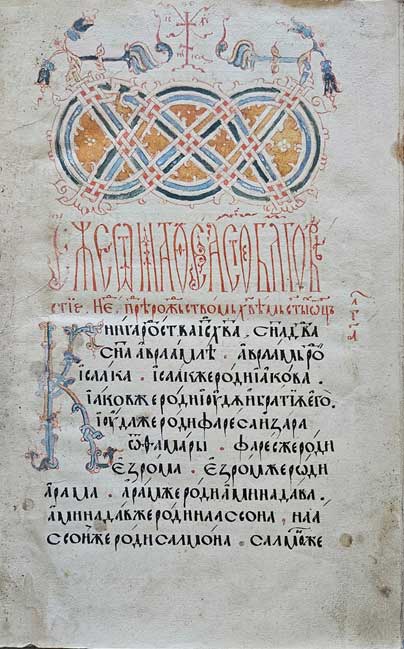 Еже ѿ Маѳеа ст҃ое благовѣ
стїе. нeдѣлѧ прⷣе рожⷣество̀мь хв҃ѣмь ст҃ы́хь ѿц҃ь
Книга родства і҆с҃ хв҃а. сн҃а дв҃да
сн҃а авраамлѣ. авраамь роⷣ
ісаака. ісаакже роди іакова.
іаковже роди іоудѫ и братїѫ его.
іоудаже роди фареса и зара
ѿ ѳамары. фаресже роди
езрома. езромже роди
арама. арамже роди аминадава.
аминадавже роди наассона, наа
ссонже роди салмона. салмонже